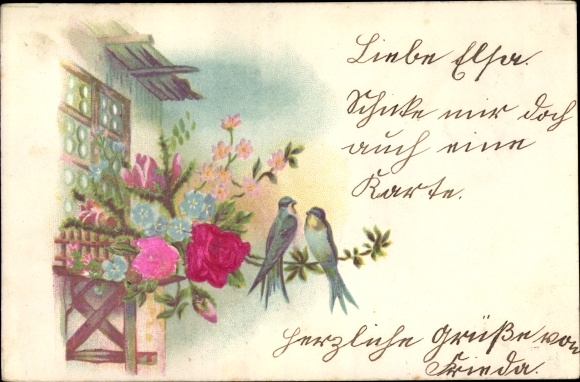 Liebe Elsa.
Schicke mir doch
auch eine
Karte.
Herzliche Grüße von
Frieda.